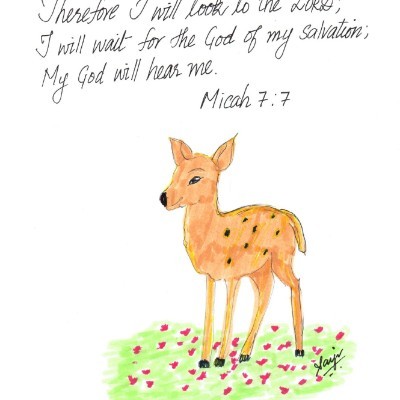 Therefore I will look to the LORD;
I will wait for the God of my salvation;
My God will hear me.
Micah 7:7